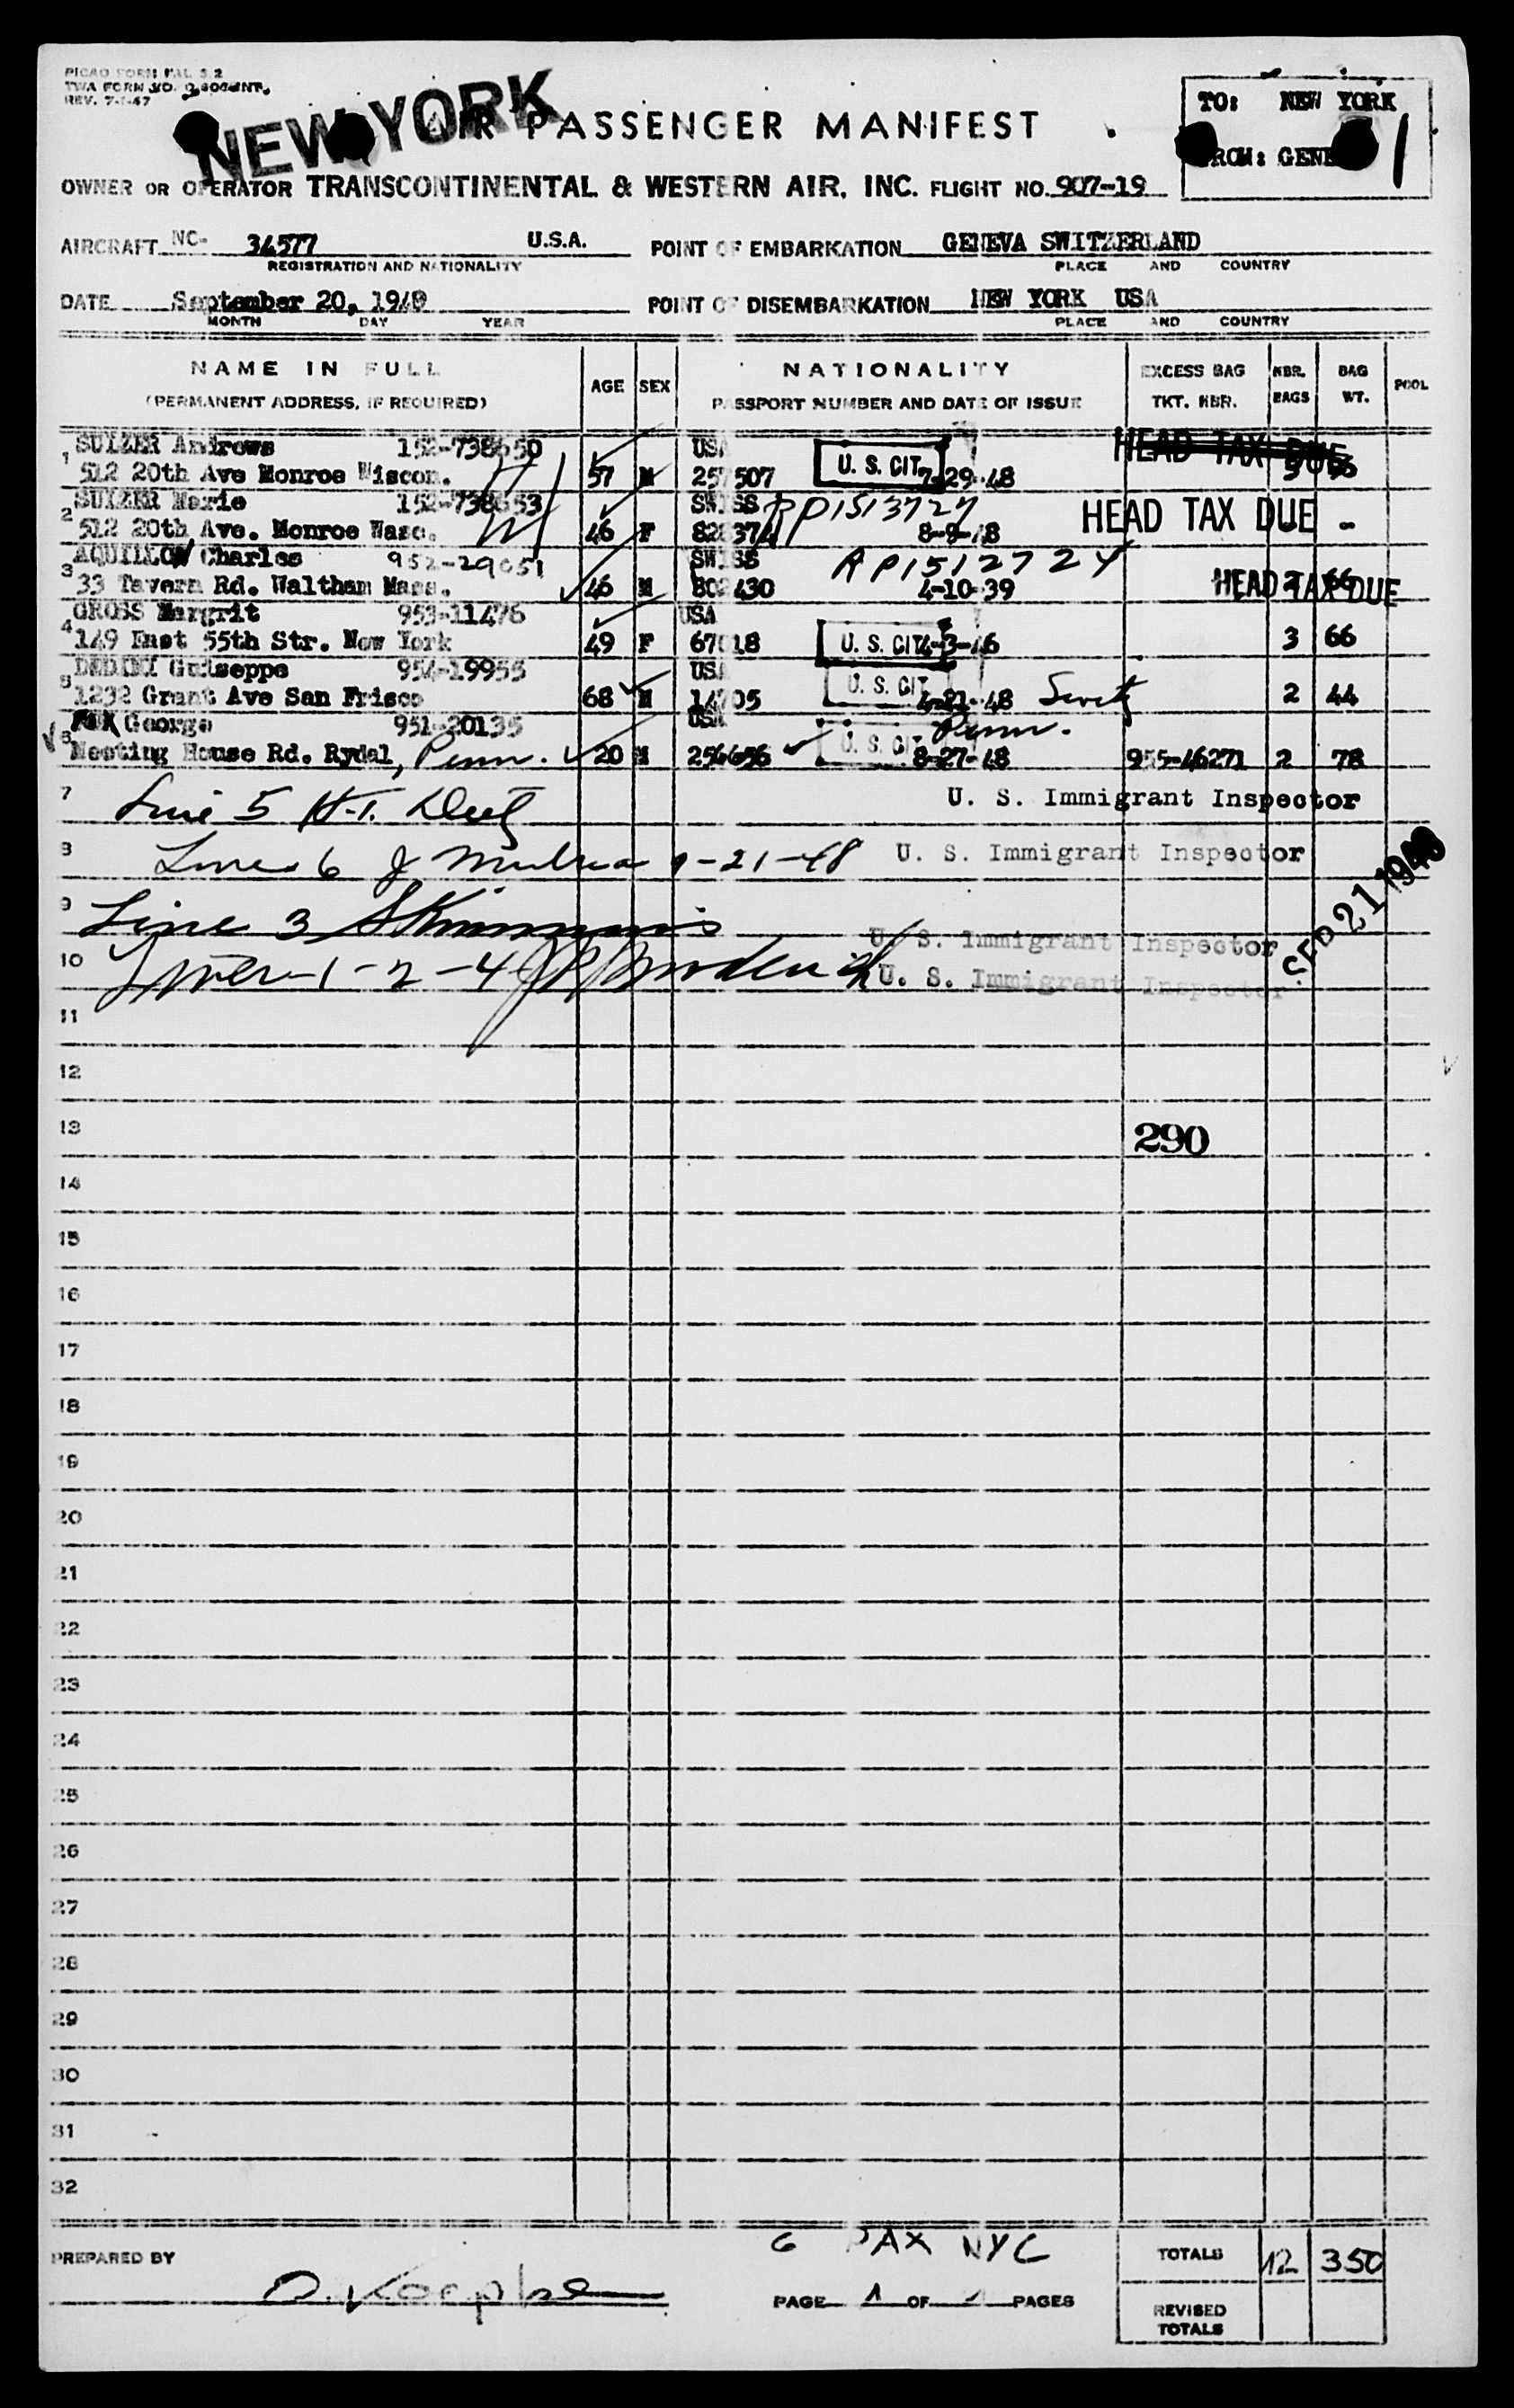 PICAO FORM PAL S.2
REV. 7-1-47
NEW YORK
AIR PASSENGER MANIFEST
TO: NEW YORK
FROM: GENE
1
OWNER OR OPERATOR TRANSCONTINENTAL & WESTERN AIR, INC. FLIGHT NO. 907-19
AIRCRAFT NC- 34577 U.S.A. POINT OF EMBARKATION GENEVA SWITZERLAND
REGISTRATION AND NATIONALITY PLACE AND COUNTRY
DATE September 20, 1948 POINT OF DISEMBARKATION NEW YORK USA
MONTH DAY YEAR PLACE AND COUNTRY
NAME IN FULL NATIONALITY EXCESS BAG NBR. BAG
(PERMANENT ADDRESS, IF REQUIRED) AGE SEX PASSPORT NUMBER AND DATE OF ISSUE TKT. NBR. BAGS WT. POOL
1 SULZER Andrews 152-738650 USA HEAD TAX DUE
512 20th Ave Monroe Wiscon. 57 M 257507 U. S. CIT. 7-29-48 3
2 SULZER Marie 152-738653 SWISS RP1513727 HEAD TAX DUE -
512 20th Ave. Monroe Wasc. 46 F 8-9-48
3 AQUILLON Charles 952-29051 SWISS AP1512724
33 Tavern Rd. Waltham Mass. 46 M 802430 4-10-39 HEAD TAX DUE 2 66
4 GROSS Margrit 953-11476 USA
149 East 55th Str. New York 49 F 67018 U. S. CIT. 4-3-46 3 66
5 Guiseppe 954-19955 USA
1232 Grant Ave San Frisco 68 M 14705 U. S. CIT. 4-21-48 2 44
6 FOX George 951-20135 USA Penn.
Meeting House Rd. Rydal, Penn. 20 M 256656 U. S. CIT. 8-27-48 955-46271 2 78
7 Line 5 H.T. U. S. Immigrant Inspector
8 Line 6 J 9-21-48 U. S. Immigrant Inspector
SEP 21 1948
9 Line 3 U. S. Immigrant Inspector
10 Lines 1-2-4 U. S. Immigrant Inspector
11
12
13 290
14
15
16
17
18
19
20
21
22
23
24
25
26
27
28
29
30
31
32
6 PAX NYC
PREPARED BY TOTALS 12 350
PAGE 1 OF 1 PAGES
REVISED
TOTALS